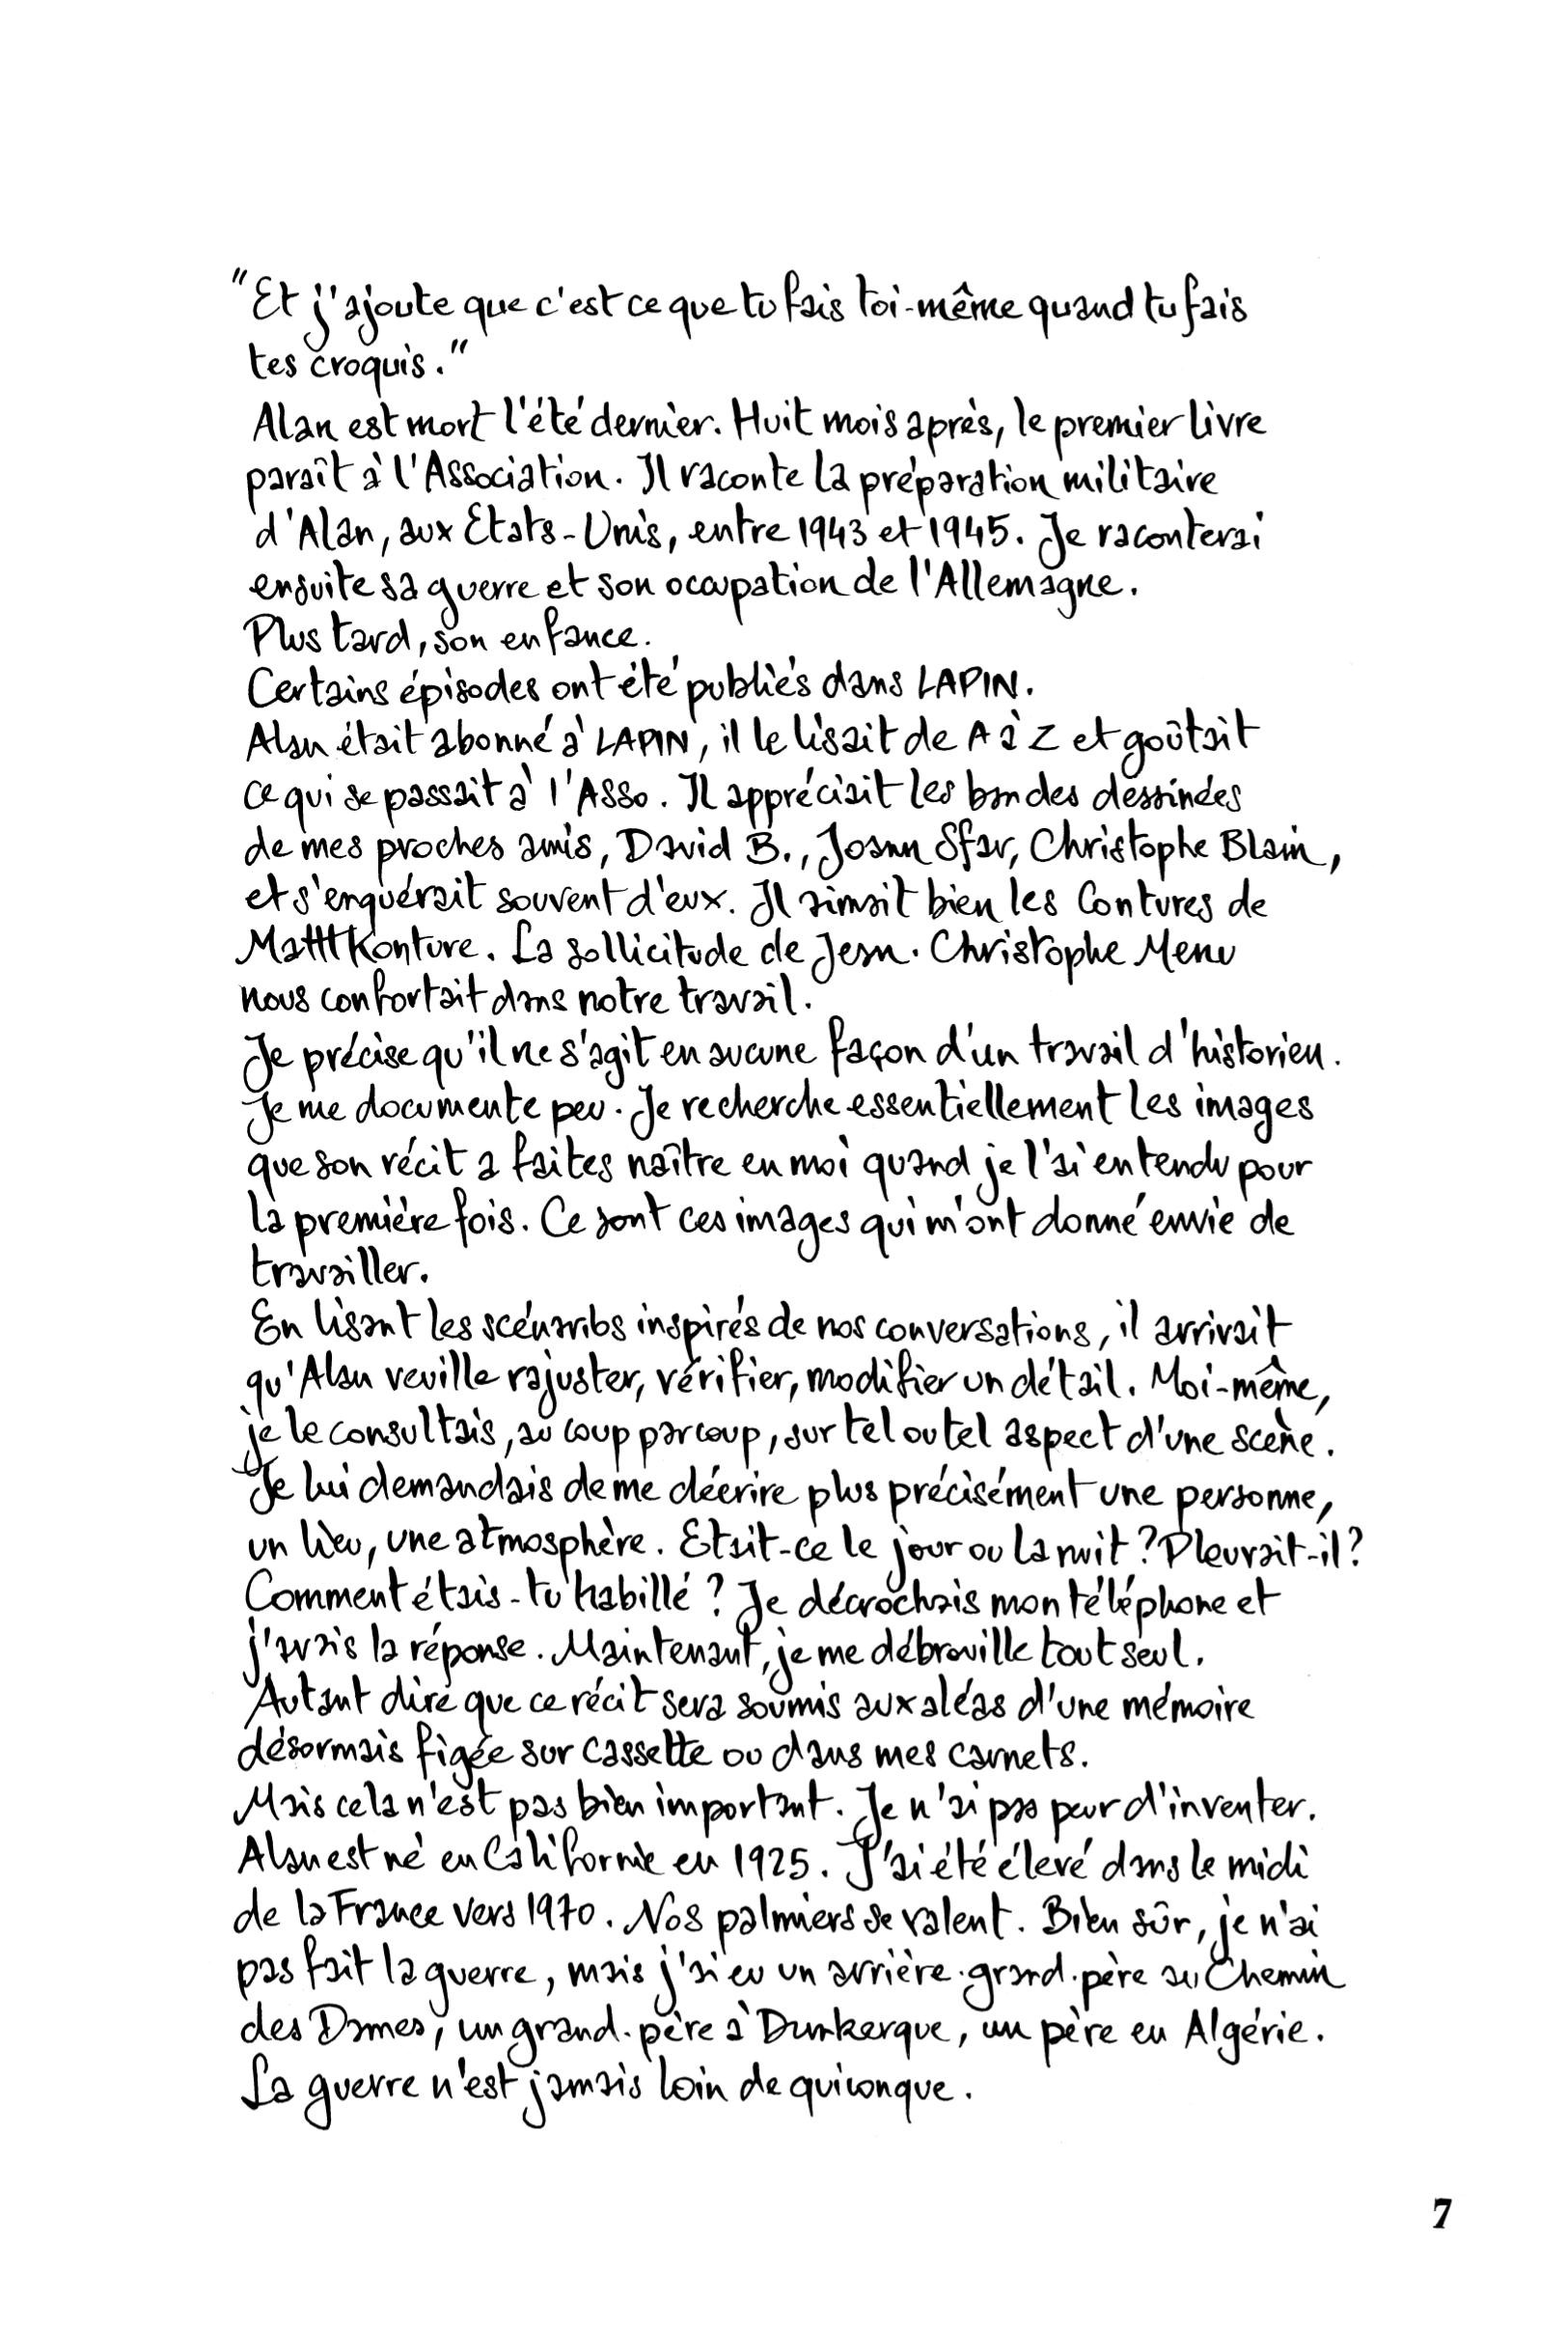 "Et j'ajoute que c'est ce que tu fais toi-même quand tu fais
tes croquis."
Alan est mort l'été dernier. Huit mois après, le premier livre
paraît à l'Association. Il raconte la préparation militaire
d'Alan, aux Etats-Unis, entre 1943 et 1945. Je raconterai
ensuite sa guerre et son occupation de l'Allemagne.
Plus tard, son enfance.
Certains épisodes ont été publiés dans LAPIN.
Alan était abonné à LAPIN, il le lisait de A à Z et goûtait
ce qui se passait à l'Asso. Il appréciait les bandes dessinées
de mes proches amis, David B., Joann Sfar, Christophe Blain,
et s'enquérait souvent d'eux. Il aimait bien les Contures de
Mattt Konture. La sollicitude de Jean-Christophe Menu
nous confortait dans notre travail.
Je précise qu'il ne s'agit en aucune façon d'un travail d'historien.
Je me documente peu. Je recherche essentiellement les images
que son récit a faites naître en moi quand je l'ai entendu pour
la première fois. Ce sont ces images qui m'ont donné envie de
travailler.
En lisant les scénarios inspirés de nos conversations, il arrivait
qu'Alan veuille rajuster, vérifier, modifier un détail. Moi-même,
je le consultais, au coup par coup, sur tel ou tel aspect d'une scène.
Je lui demandais de me décrire plus précisément une personne,
un lieu, une atmosphère. Etait-ce le jour ou la nuit ? Pleurait-il ?
Comment étais-tu habillé ? Je décrochais mon téléphone et
j'avais la réponse. Maintenant, je me débrouille tout seul.
Autant dire que ce récit sera soumis aux aléas d'une mémoire
désormais figée sur cassette ou dans mes carnets.
Mais cela n'est pas bien important. Je n'ai pas peur d'inventer.
Alan est né en Californie en 1925. J'ai été élevé dans le midi
de la France vers 1970. Nos palmiers se valent. Bien sûr, je n'ai
pas fait la guerre, mais j'ai eu un arrière-grand-père au Chemin
des Dames, un grand-père à Dunkerque, un père en Algérie.
La guerre n'est jamais loin de quiconque.
7